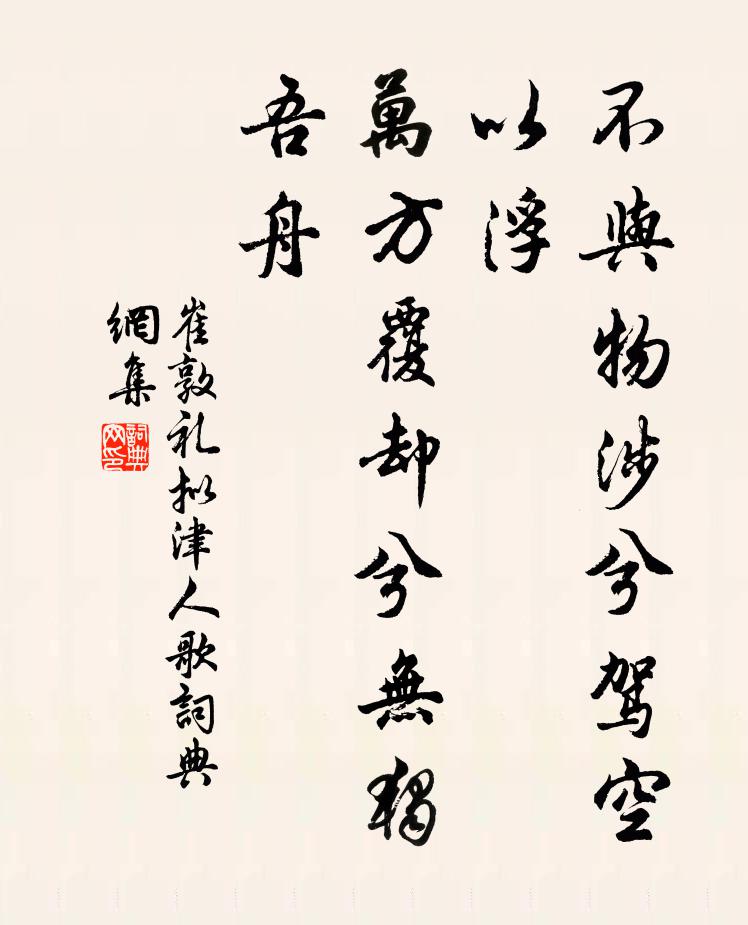 不與物涉兮駕空
以浮
萬方覆却兮無獨
吾舟
崔敦礼拟津人歌詞典
網集
詞典網印